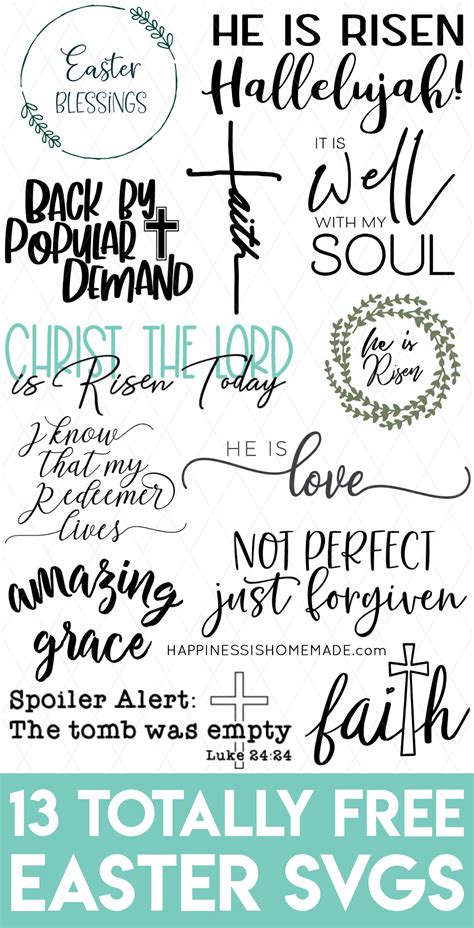 Easter
BLESSINGS
HE IS RISEN
Hallelujah!
BACK BY
POPULAR
DEMAND
faith
IT IS
Well
WITH MY
SOUL
CHRIST THE LORD
is Risen Today
he is
Risen
I know
that my
Redeemer
lives
HE IS
love
NOT PERFECT
just forgiven
amazing
grace
HAPPINESSISHOMEMADE.com
Spoiler Alert:
The tomb was empty
Luke 24:24
faith
13 TOTALLY FREE
EASTER SVGS